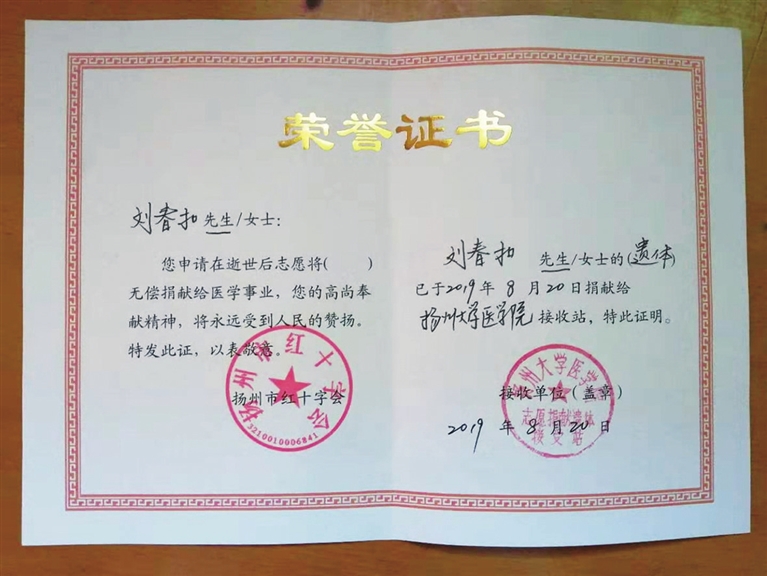 荣誉证书
刘春扣 先生/女士：
您申请在逝世后志愿将(　　)
无偿捐献给医学事业，您的高尚奉
献精神，将永远受到人民的赞扬。
特发此证，以表敬意。
扬州市红十字会
扬州市红十字会
3210010006841
刘春扣 先生/女士的(遗体)
已于2019年8月20日捐献给
扬州大学医学院 接收站，特此证明。
接收单位（盖章）
2019 年 8 月 20 日
扬州大学医学院
志愿捐献遗体
接受站